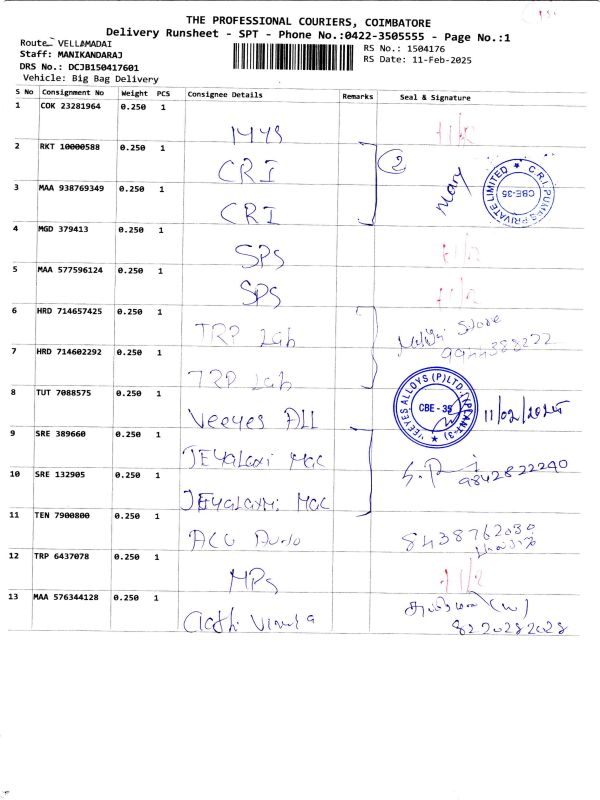 THE PROFESSIONAL COURIERS, COIMBATORE
Delivery Runsheet - SPT - Phone No.:0422-3505555 - Page No.:1
Route: VELLAMADAI
RS No.: 1504176
Staff: MANIKANDARAJ
RS Date: 11-Feb-2025
DRS No.: DCJB150417601
Vehicle: Big Bag Delivery
S No Consignment No Weight PCS Consignee Details Remarks Seal & Signature
1 COK 23281964 0.250 1
MYS
2 RKT 10000588 0.250 1
CRI 2 Mary
C.R.I. PUMPS PRIVATE LIMITED CBE-35
3 MAA 938769349 0.250 1
CRI
4 MGD 379413 0.250 1
SPS 11/2
5 MAA 577596124 0.250 1
SPS 11/2
6 HRD 714657425 0.250 1
TRP Lab
7 HRD 714602292 0.250 1
TRP Lab
8 TUT 7088575 0.250 1
Veeyes All 11/02/2025
VEEYES ALLOYS (P) LTD. CBE - 35
9 SRE 389660 0.250 1
JEYALaxi Mac
10 SRE 132905 0.250 1
JEYALaxmi Mac 9842822290
11 TEN 7900800 0.250 1
ACU 8438762030
12 TRP 6437078 0.250 1
MPS 11/2
13 MAA 576344128 0.250 1
8220282028